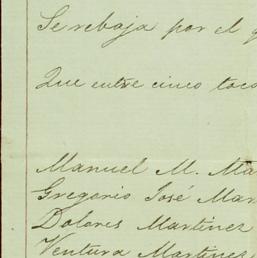 Se rebaja por el
Que entre cinco
Manuel M.
Gregorio José
Dolores Martinez
Ventura Martinez